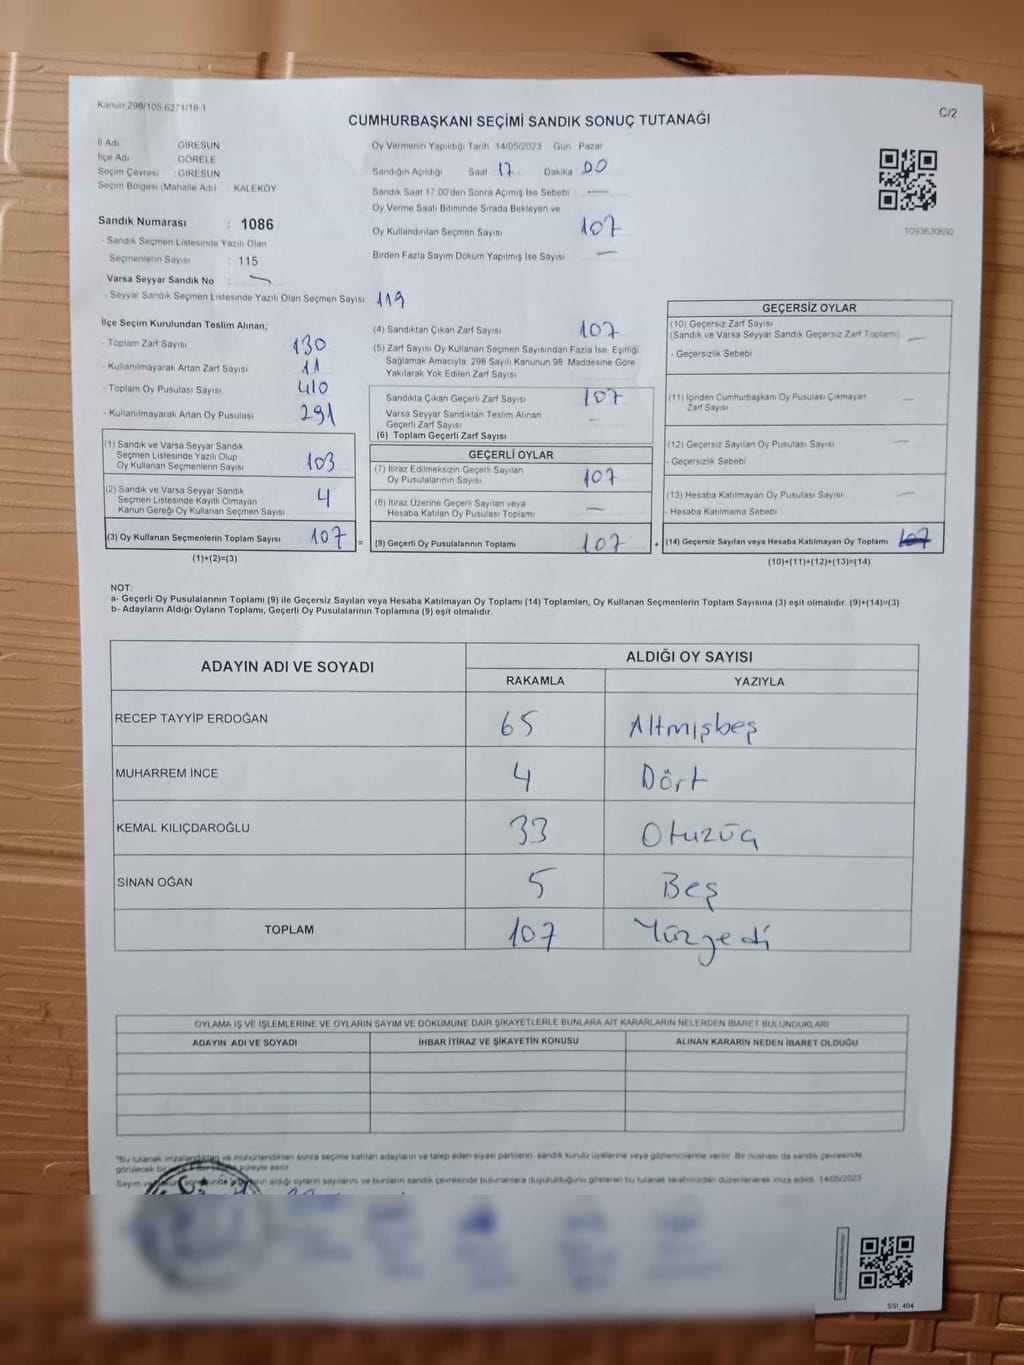 Kanun:298/105,6271/16-1
C/2
CUMHURBAŞKANI SEÇİMİ SANDIK SONUÇ TUTANAĞI
İl Adı GİRESUN
İlçe Adı GÖRELE
Seçim Çevresi : GİRESUN
Seçim Bölgesi (Mahalle Adı) KALEKÖY
Sandık Numarası : 1086
- Sandık Seçmen Listesinde Yazılı Olan
Seçmenlerin Sayısı : 115
Varsa Seyyar Sandık No : —
- Seyyar Sandık Seçmen Listesinde Yazılı Olan Seçmen Sayısı 119
Oy Vermenin Yapıldığı Tarih 14/05/2023 Gün Pazar
Sandığın Açıldığı Saat 17 Dakika 00
Sandık Saat 17.00'den Sonra Açılmış İse Sebebi —
Oy Verme Saati Bitiminde Sırada Bekleyen ve
Oy Kullandırılan Seçmen Sayısı 107
Birden Fazla Sayım Döküm Yapılmış İse Sayısı —
1093630692
İlçe Seçim Kurulundan Teslim Alınan;
- Toplam Zarf Sayısı 130
- Kullanılmayarak Artan Zarf Sayısı 11
- Toplam Oy Pusulası Sayısı 410
- Kullanılmayarak Artan Oy Pusulası 291
(1) Sandık ve Varsa Seyyar Sandık
Seçmen Listesinde Yazılı Olup
Oy Kullanan Seçmenlerin Sayısı 103
(2) Sandık ve Varsa Seyyar Sandık
Seçmen Listesinde Kayıtlı Olmayan
Kanun Gereği Oy Kullanan Seçmen Sayısı 4
(3) Oy Kullanan Seçmenlerin Toplam Sayısı 107 =
(1)+(2)=(3)
(4) Sandıktan Çıkan Zarf Sayısı 107
(5) Zarf Sayısı Oy Kullanan Seçmen Sayısından Fazla İse, Eşitliği
Sağlamak Amacıyla, 298 Sayılı Kanunun 98 Maddesine Göre
Yakılarak Yok Edilen Zarf Sayısı
Sandıkta Çıkan Geçerli Zarf Sayısı 107
Varsa Seyyar Sandıktan Teslim Alınan
Geçerli Zarf Sayısı —
(6) Toplam Geçerli Zarf Sayısı
GEÇERLİ OYLAR
(7) İtiraz Edilmeksizin Geçerli Sayılan
Oy Pusulalarının Sayısı 107
(8) İtiraz Üzerine Geçerli Sayılan veya
Hesaba Katılan Oy Pusulası Toplamı —
(9) Geçerli Oy Pusulalarının Toplamı 107 +
GEÇERSİZ OYLAR
(10) Geçersiz Zarf Sayısı
(Sandık ve Varsa Seyyar Sandık Geçersiz Zarf Toplamı) —
- Geçersizlik Sebebi
(11) İçinden Cumhurbaşkanı Oy Pusulası Çıkmayan
Zarf Sayısı —
(12) Geçersiz Sayılan Oy Pusulası Sayısı —
- Geçersizlik Sebebi
(13) Hesaba Katılmayan Oy Pusulası Sayısı —
- Hesaba Katılmama Sebebi
(14) Geçersiz Sayılan veya Hesaba Katılmayan Oy Toplamı 107
(10)+(11)+(12)+(13)=(14)
NOT:
a- Geçerli Oy Pusulalarının Toplamı (9) ile Geçersiz Sayılan veya Hesaba Katılmayan Oy Toplamı (14) Toplamları, Oy Kullanan Seçmenlerin Toplam Sayısına (3) eşit olmalıdır. (9)+(14)=(3)
b- Adayların Aldığı Oyların Toplamı, Geçerli Oy Pusulalarının Toplamına (9) eşit olmalıdır.
ADAYIN ADI VE SOYADI
ALDIĞI OY SAYISI
RAKAMLA YAZIYLA
RECEP TAYYİP ERDOĞAN 65 Altmışbeş
MUHARREM İNCE 4 Dört
KEMAL KILIÇDAROĞLU 33 Otuzüç
SİNAN OĞAN 5 Beş
TOPLAM 107 Yüzyedi
OYLAMA İŞ VE İŞLEMLERİNE VE OYLARIN SAYIM VE DÖKÜMÜNE DAİR ŞİKAYETLERLE BUNLARA AİT KARARLARIN NELERDEN İBARET BULUNDUKLARI
ADAYIN ADI VE SOYADI İHBAR İTİRAZ VE ŞİKAYETİN KONUSU ALINAN KARARIN NEDEN İBARET OLDUĞU
*Bu tutanak imzalandıktan ve mühürlendikten sonra seçime katılan adayların ve talep eden siyasi partilerin sandık kurulu üyelerine veya gözlemcilerine verilir. Bir nüshası da sandık çevresinde
görülecek bir süreyle asılır
Sayım ve aldığı oyların sayılarını ve bunların sandık çevresinde bulunanlara duyurulduğunu gösteren bu tutanak tarafımızdan düzenlenerek imza edildi. 14/05/2023
SSI_404